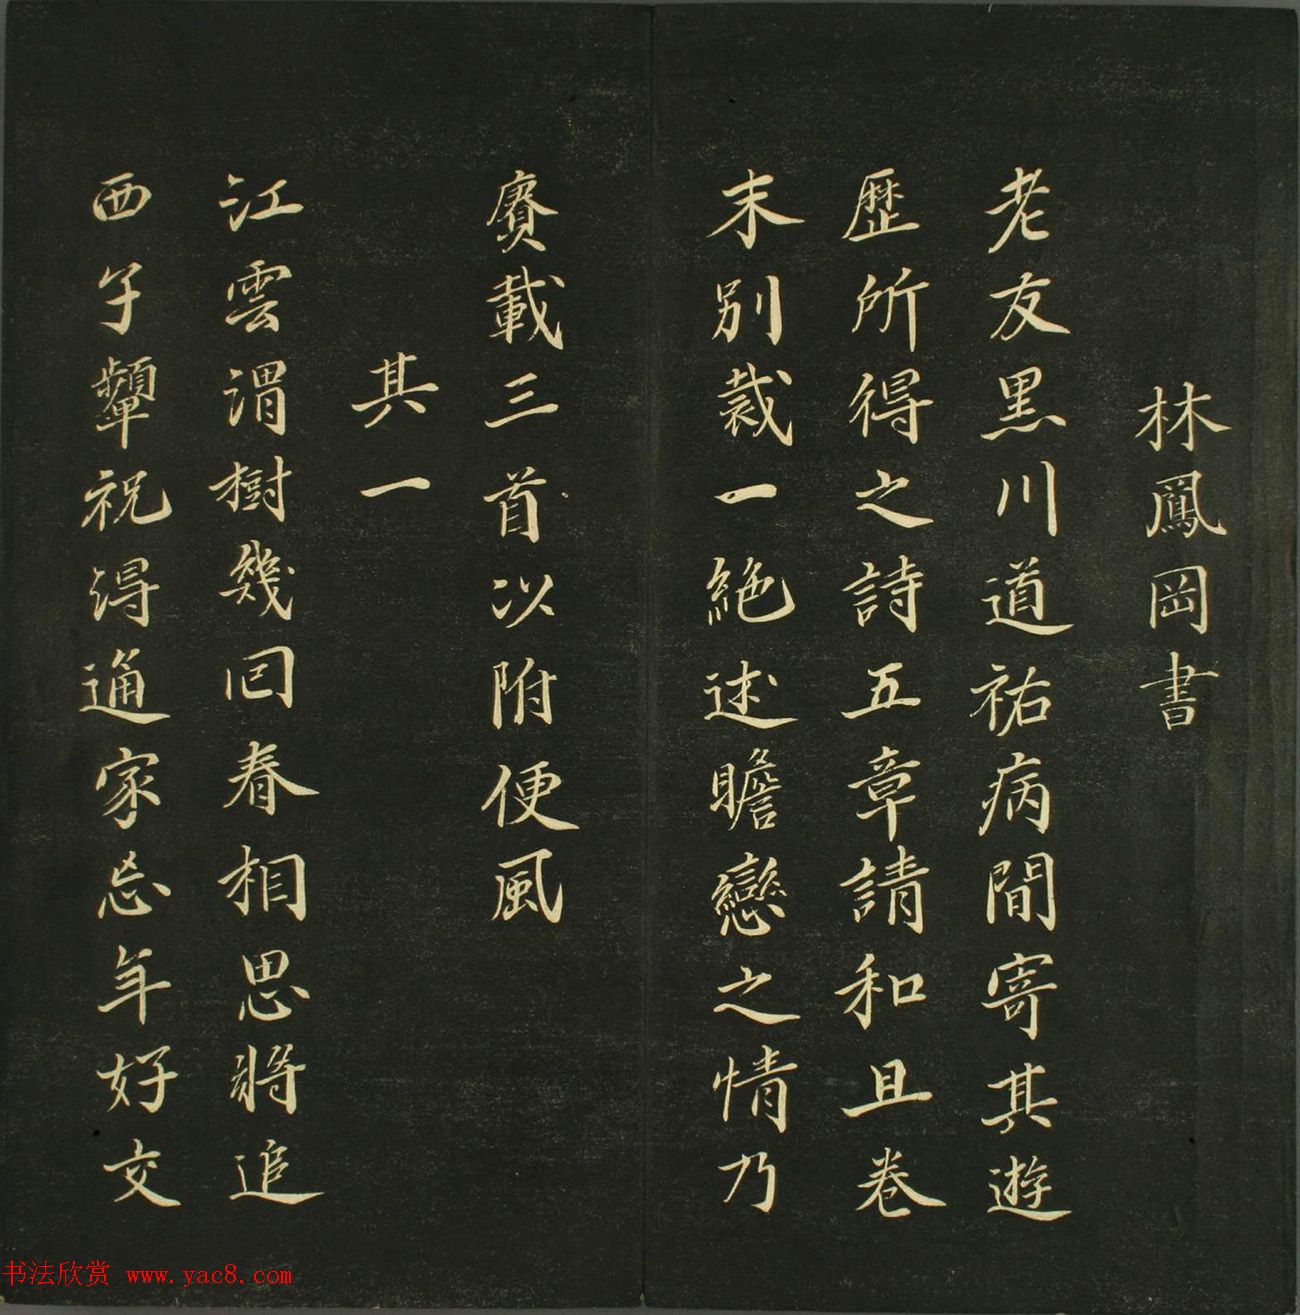 林鳳岡書
老友黑川道祐病間寄其遊
歷所得之詩五章請和且卷
末別裁一絶述瞻戀之情乃
賡載三首以附便風
其一
江雲渭樹幾回春相思將追
西子顰祝得通家忘年好交
书法欣赏 www.yac8.com